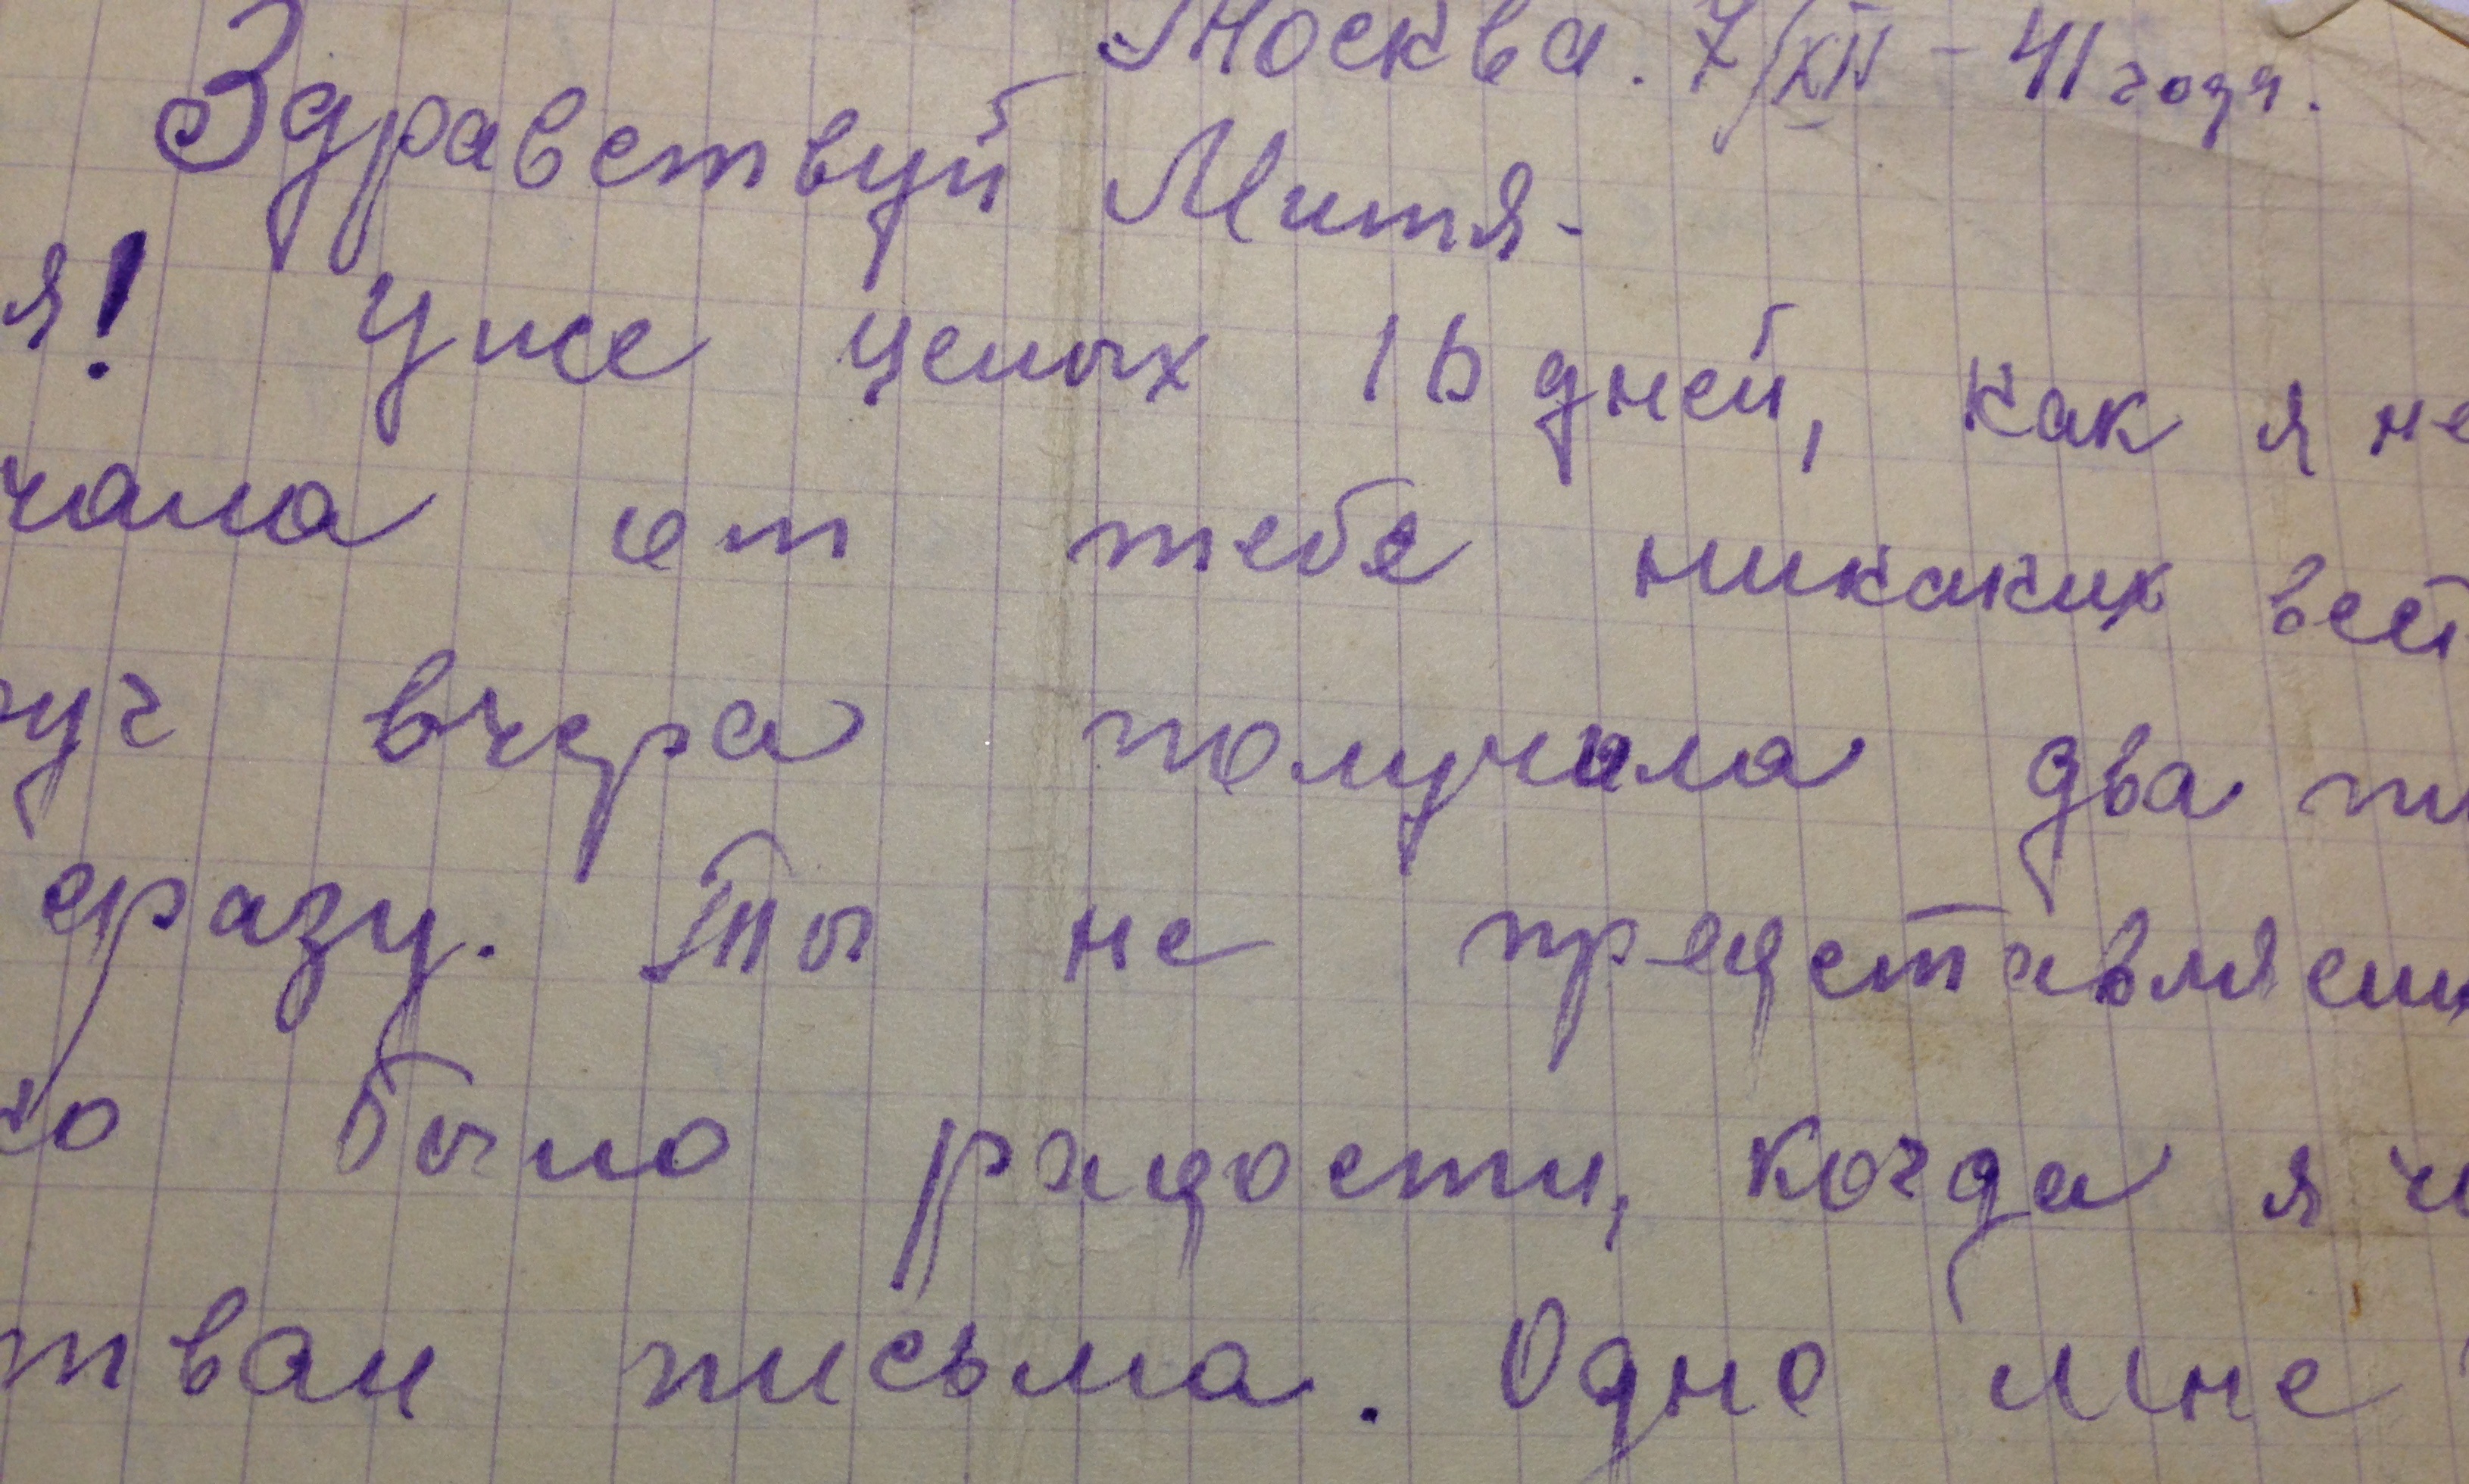 Москва. 7/XII - 41 года.
Здравствуй Митя-
я! Уже целых 16 дней, как я не
чала от тебе никаких вест
руг вчера получила два пи
сразу. Ты не представляеш
ко было радости, когда я чи
твои письма. Одно мне